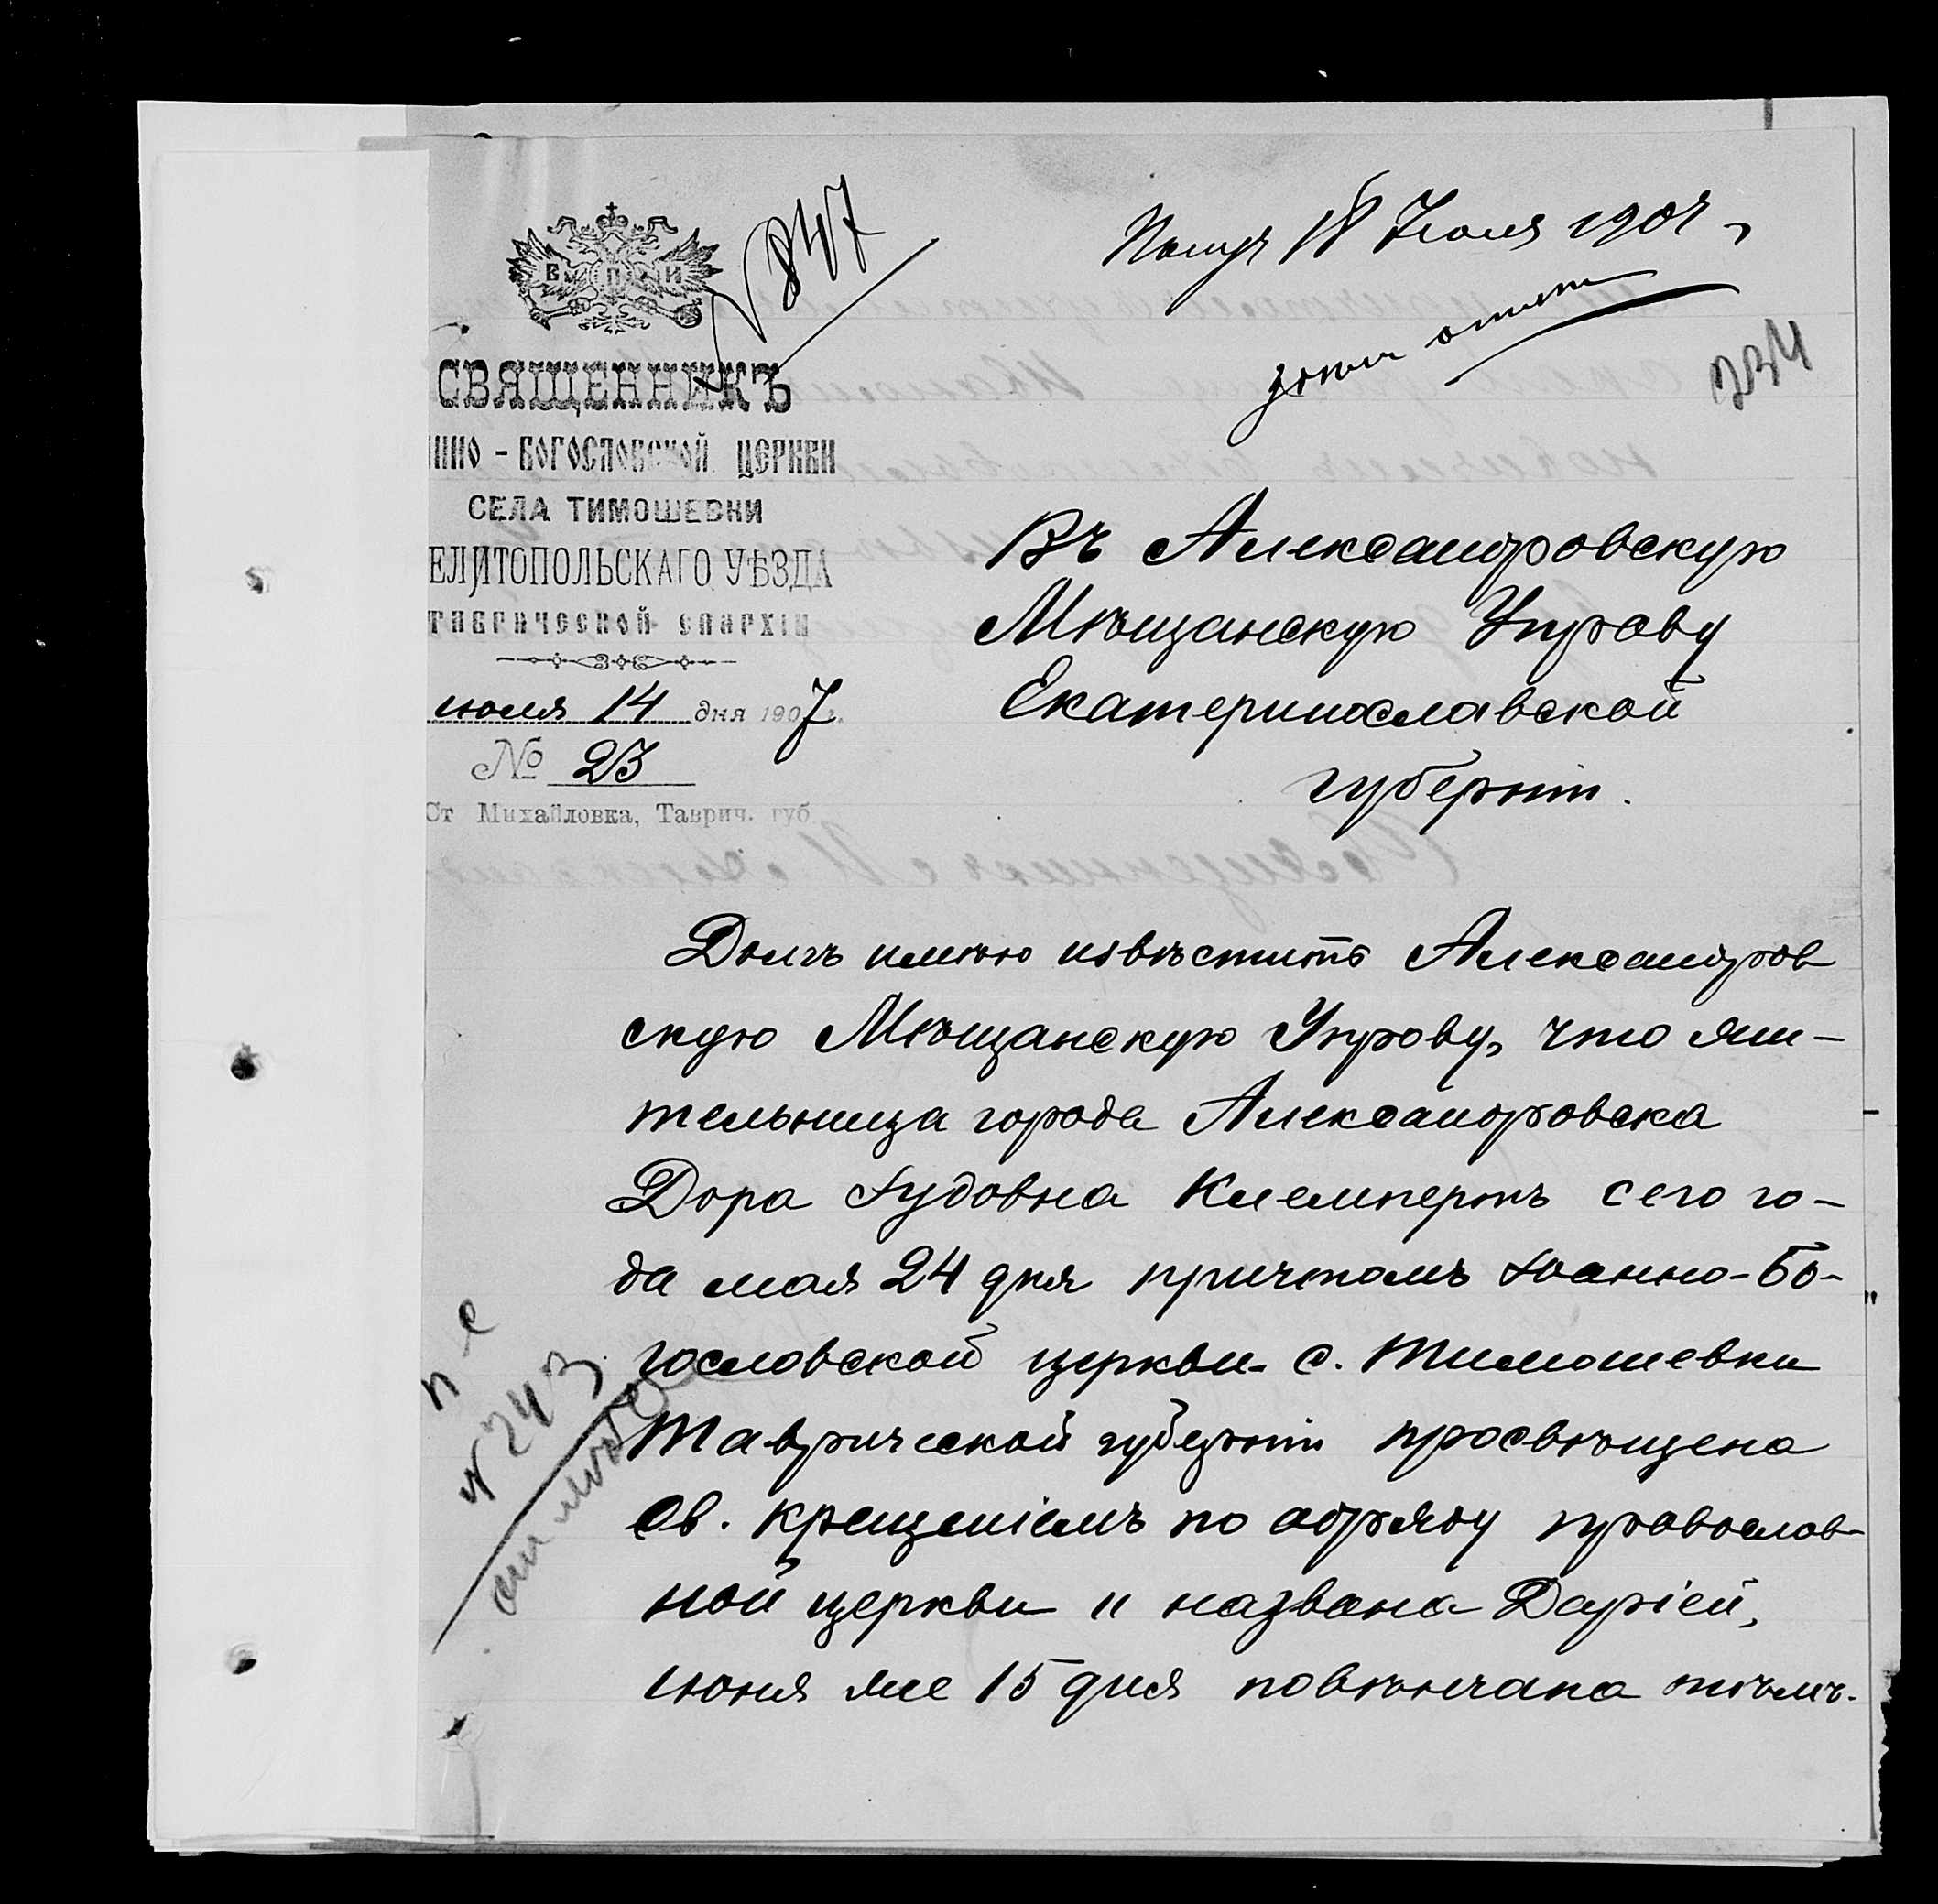 В П И
№ 847
Получ 18 Июля 1907 г
234
СВЯЩЕННИКЪ
ННО-БОГОСЛОВСКОЙ ЦЕРКВИ
СЕЛА ТИМОШЕВКИ
ЕЛИТОПОЛЬСКАГО УѢЗДА
ТАВРИЧЕСКОЙ ЕПАРХІИ
июля 14 дня 1907 г.
№ 23
Ст Михайловка, Таврич. губ.
Въ Александровскую
Мѣщанскую Управу
Екатеринославской
губерніи.
Долгъ имѣю извѣстить Александров
скую Мѣщанскую Управу, что жи-
тельница города Александровска
Дора Іудовна Клемпертъ сего го-
да мая 24 дня причтомъ Іоанно-Бо-
гословской церкви с. Тимошевки
Таврической губерніи просвѣщена
Св. Крещеніемъ по обряду православ-
ной церкви и названа Даріей,
июня же 15 дня повѣнчана тѣмъ-
№ 243